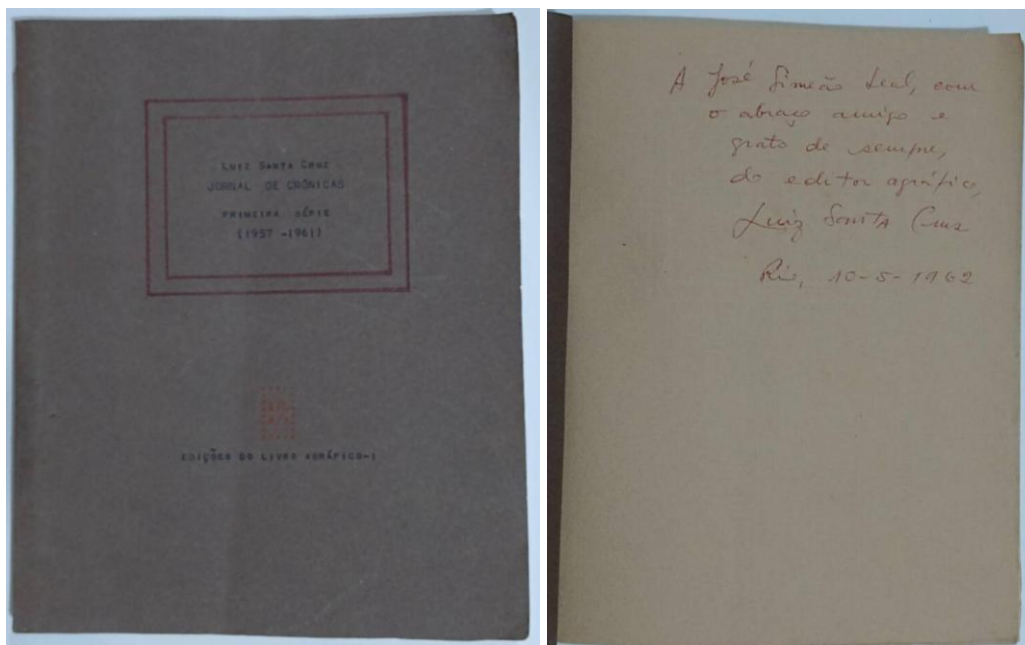 LUIZ SANTA CRUZ
JORNAL DE CRÔNICAS
PRIMEIRA SÉRIE
(1957 -1961)
EDIÇÕES DO LIVRO AGRÁFICO-1
A José Simeão Leal, com
o abraço amigo e
grato de sempre,
do editor agráfico,
Luiz Santa Cruz
Rio, 10-5-1962